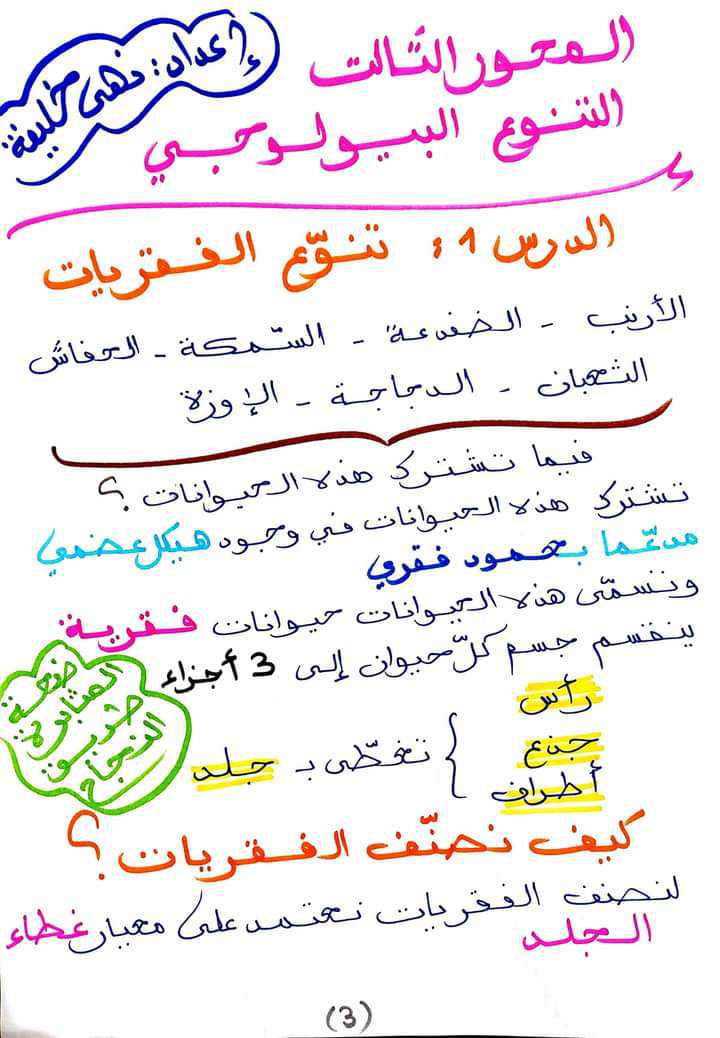 إعداد: نهى خليفة
المحور الثالث
التنوع البيولوجي
الدرس 1: تنوّع الفقريات
الأرنب - الضفدعة - السّمكة - الخفاش
الثعبان - الدجاجة - الإوزة
فيما تشترك هذه الحيوانات؟
تشترك هذه الحيوانات في وجود هيكل عضمي
مدعّما بعمود فقري
ونسمّى هذه الحيوانات حيوانات فقرية
ينقسم جسم كلّ حيوان إلى 3 أجزاء
رأس
جذع } تغطّى بـ جلد
أطراف
المثابرة
طريق
النجاح
كيف نصنّف الفقريات؟
لنصنف الفقريات نعتمد على معيار غطاء
الجلد
(3)